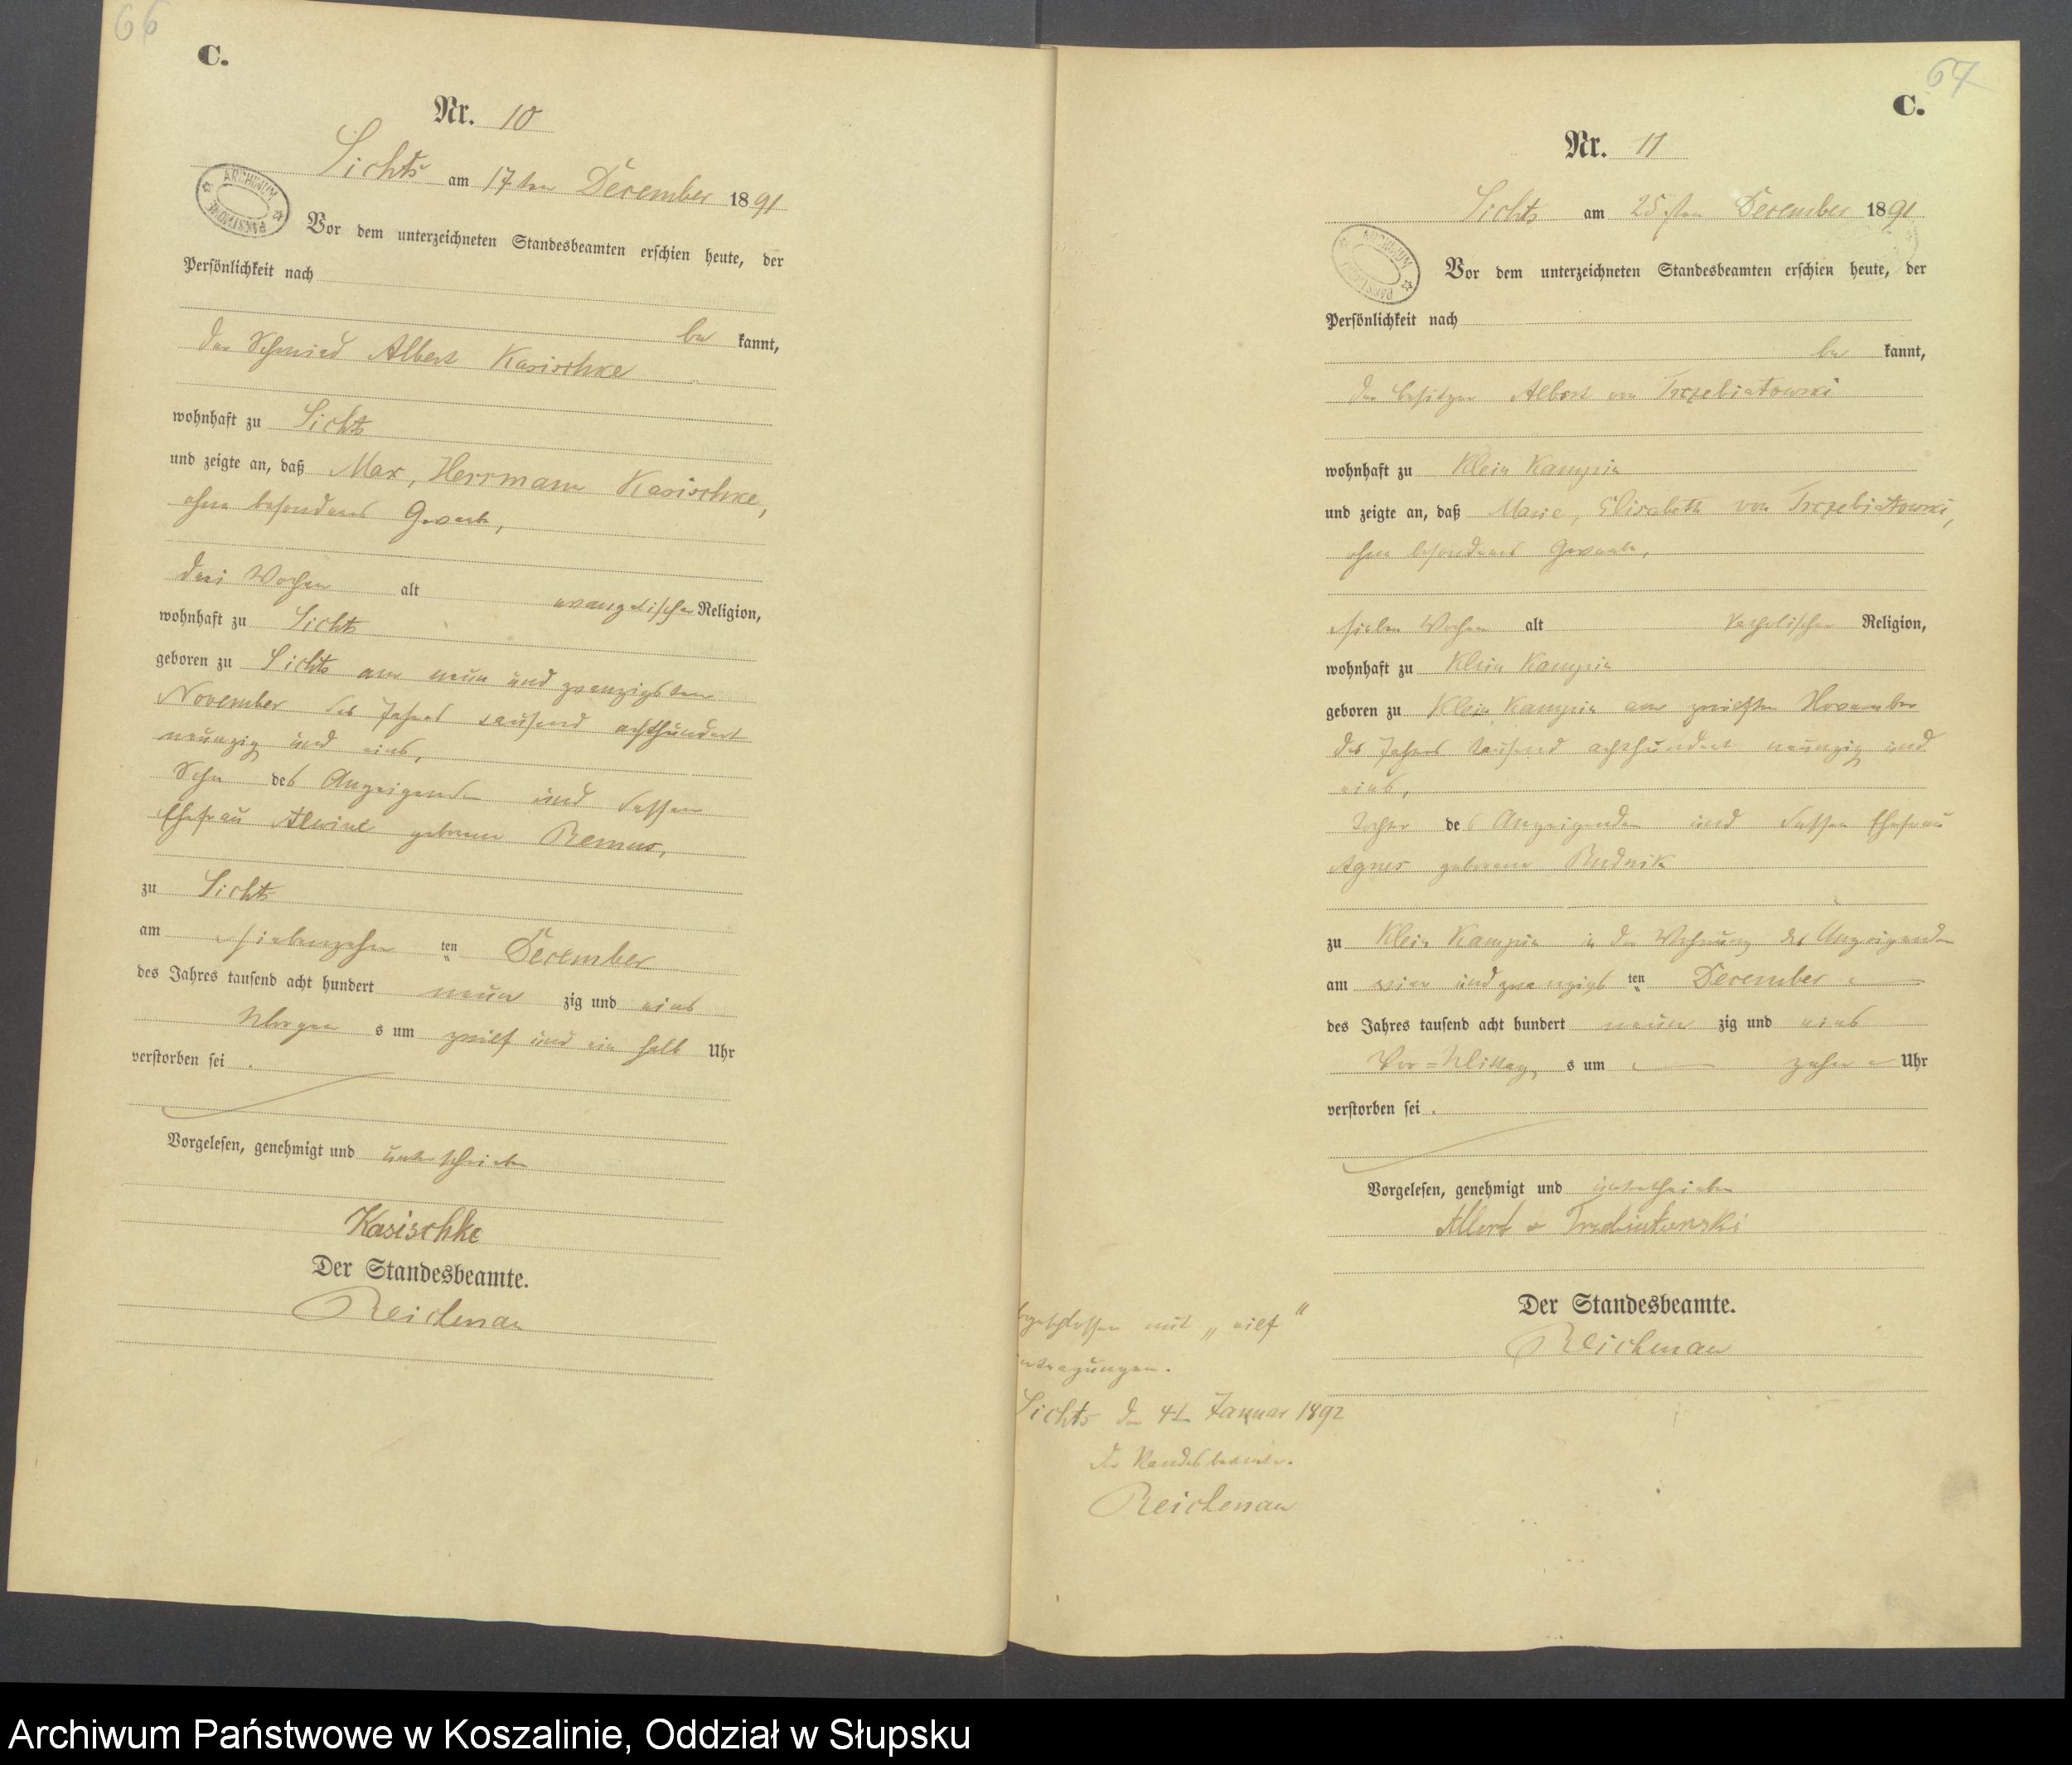 66
C.
Nr. 10
Lichts am 17ten December 1891
ARCHIWUM PAŃSTWOWE
Vor dem unterzeichneten Standesbeamten erschien heute, der
Persönlichkeit nach
be kannt,
der Schmied Albert Kasischke
wohnhaft zu Sichts
und zeigte an, daß Max, Herrmann Kasischke,
ohne besonderes Gewerbe,
drei Wochen alt evangelischer Religion,
wohnhaft zu Sichts
geboren zu Sichts am neun und zwanzigsten
November des Jahres tausend achthundert
neunzig und eins,
Sohn des Anzeigenden und dessen
Ehefrau Alwine geborene Remus,
zu Sichts
am siebenzehn ten December
des Jahres tausend acht hundert neun zig und eins
Morgen s um zwölf und ein halb Uhr
verstorben sei.
Vorgelesen, genehmigt und unterschrieben
Kasischke
Der Standesbeamte.
Reichenau
67
C.
Nr. 11
Sichts am 25sten December 1891
ARCHIWUM PAŃSTWOWE
Vor dem unterzeichneten Standesbeamten erschien heute, der
Persönlichkeit nach
be kannt,
der Besitzer Albert von Trzebiatowski
wohnhaft zu Klein Kampin
und zeigte an, daß Marie, Elisabeth von Trzebiatowski,
ohne besonderes Gewerbe,
sieben Wochen alt katholischer Religion,
wohnhaft zu Klein Kampin
geboren zu Klein Kampin am zwölften November
des Jahres tausend achthundert neunzig und
eins,
Tochter des Anzeigenden und dessen Ehefrau
Agnes geborene Rudnik
zu Klein Kampin in der Wohnung des Anzeigenden
am vier und zwanzigs ten December
des Jahres tausend acht hundert neun zig und eins
Vor=Mittag s um zehn Uhr
verstorben sei.
Vorgelesen, genehmigt und unterschrieben
Albert v Trzebiatowski
Der Standesbeamte.
Reichenau
mit „eilf"
Eintragungen.
Sichts den 4t Januar 1892
Der Standesbeamte.
Reichenau
Archiwum Państwowe w Koszalinie, Oddział w Słupsku